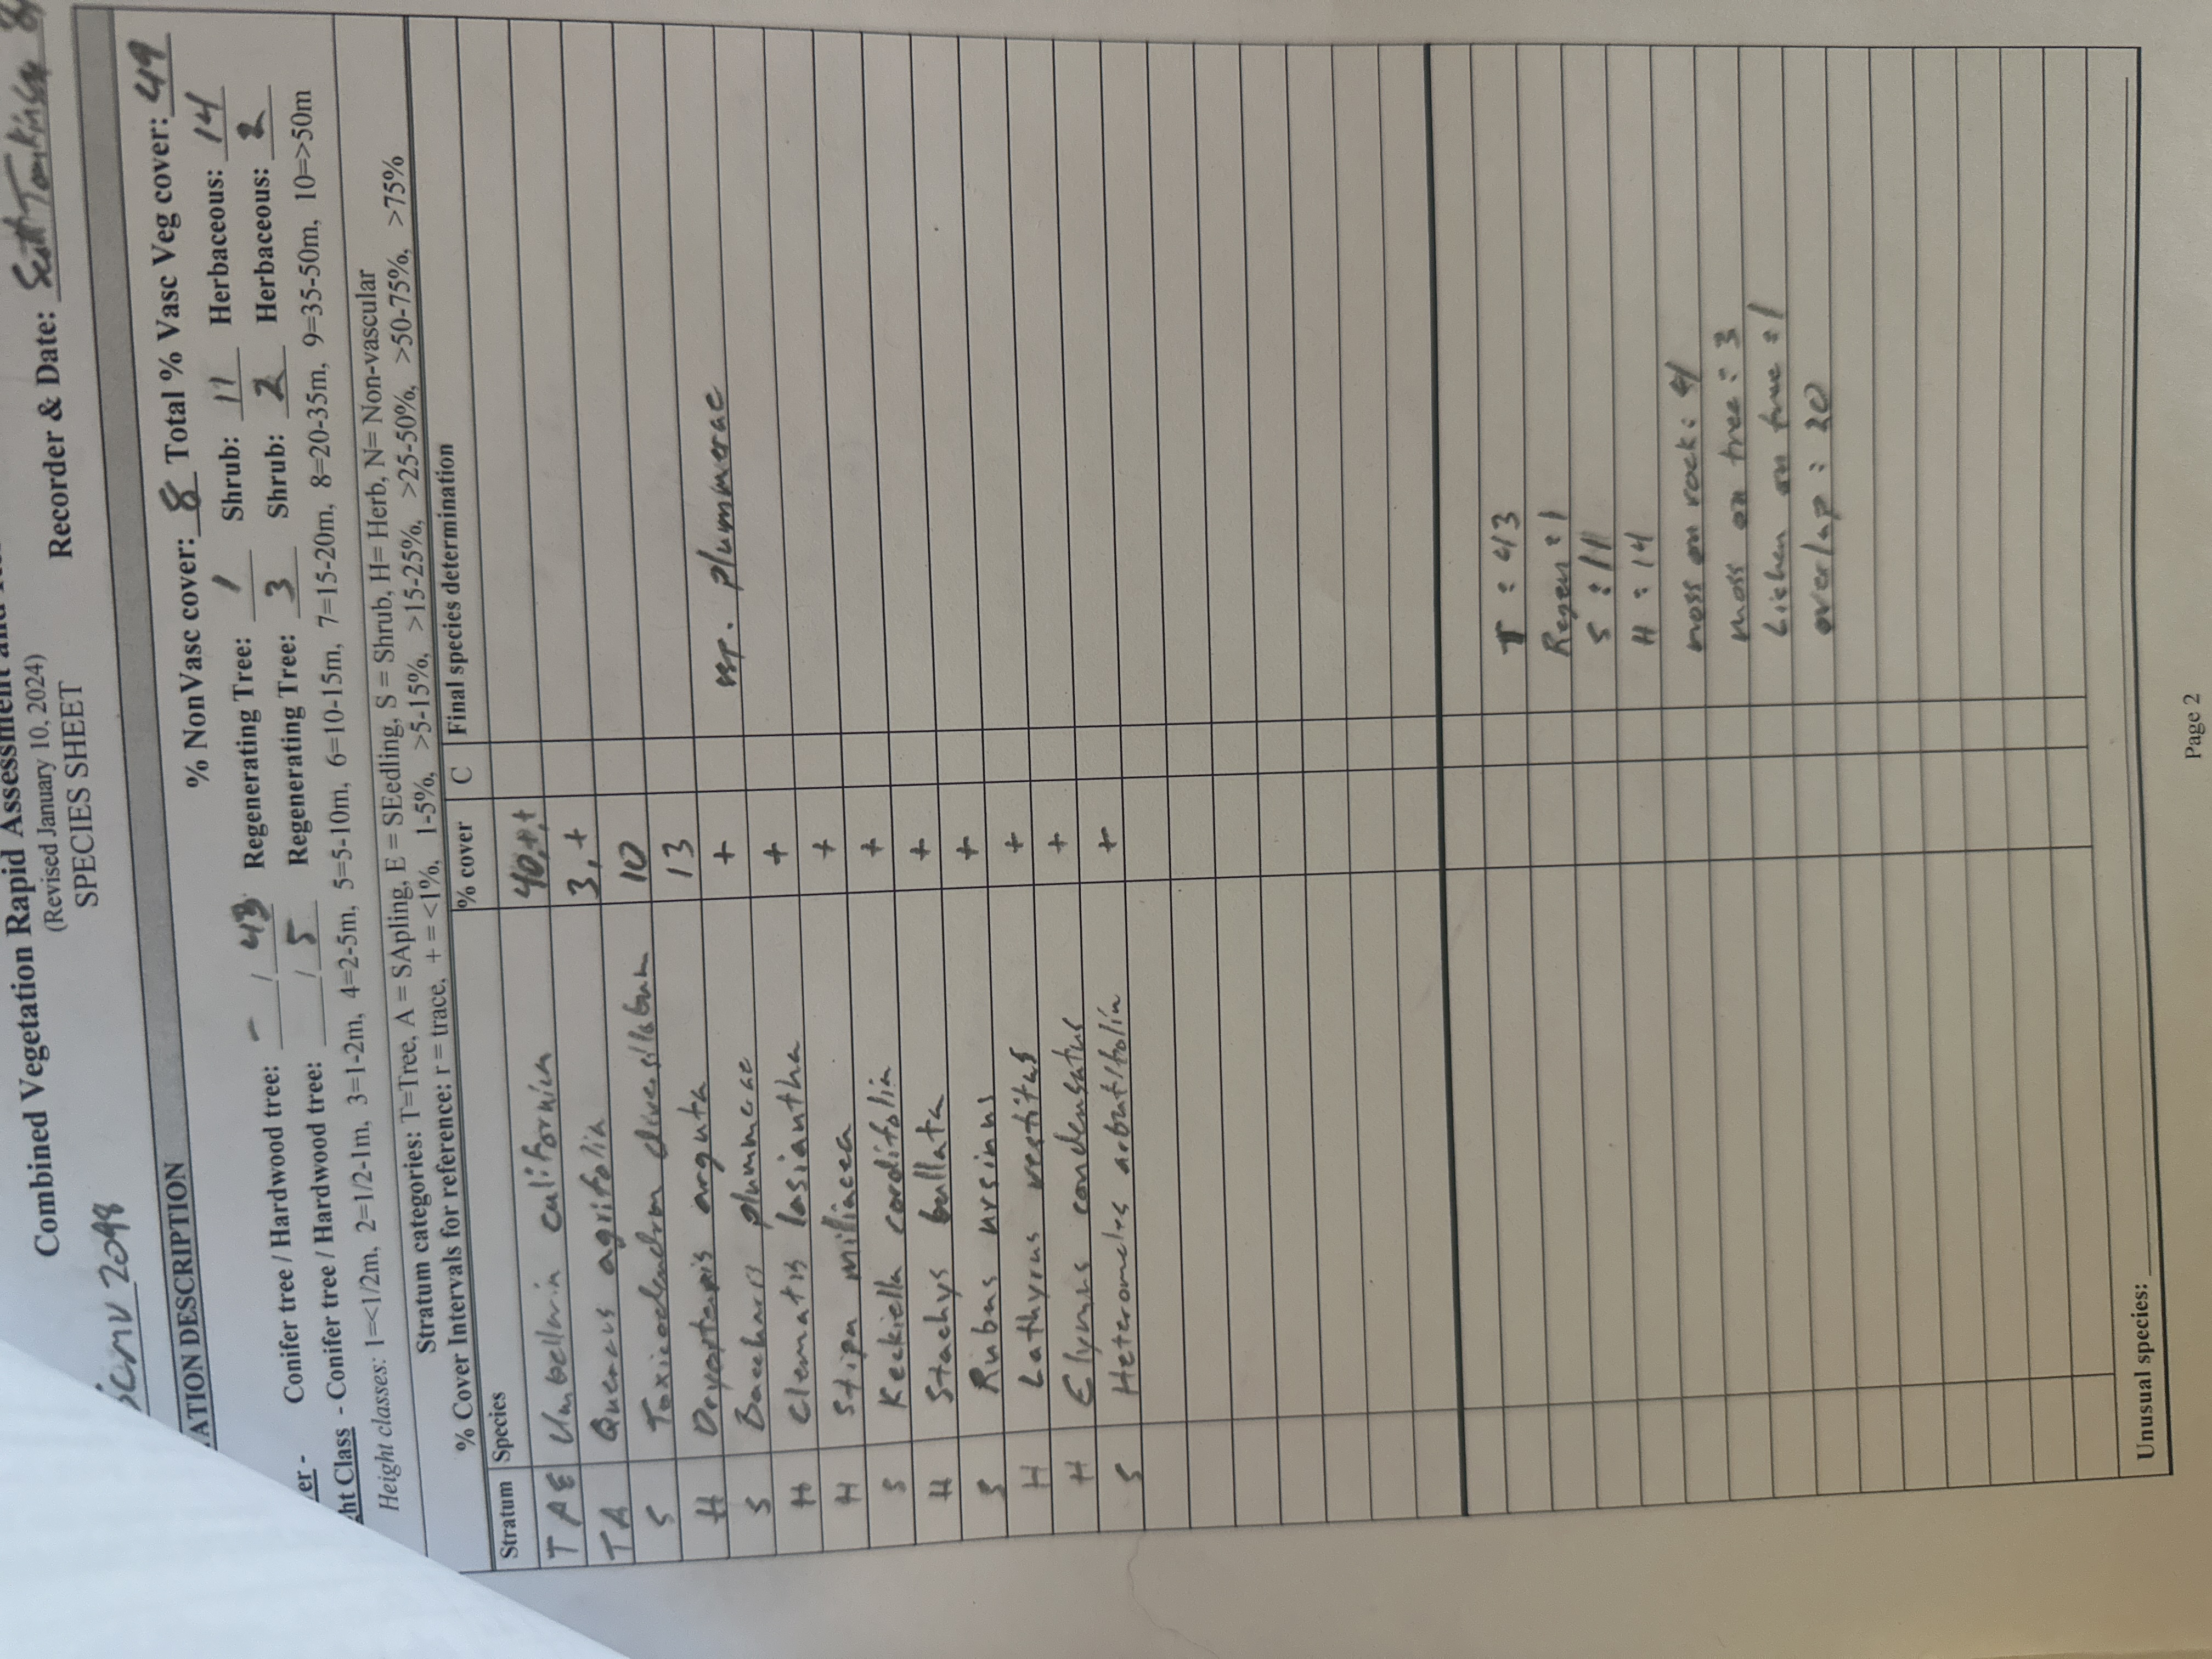 Combined Vegetation Rapid Assessment and
(Revised January 10, 2024)
SPECIES SHEET
2098
Recorder & Date: Scott Tomkinson
ATION DESCRIPTION
% NonVasc cover: 8 Total % Vasc Veg cover: 49
er - Conifer tree / Hardwood tree: - / 43 Regenerating Tree: 1 Shrub: 11 Herbaceous: 14
ht Class - Conifer tree / Hardwood tree: / 5 Regenerating Tree: 3 Shrub: 2 Herbaceous: 2
Height classes: 1=<1/2m, 2=1/2-1m, 3=1-2m, 4=2-5m, 5=5-10m, 6=10-15m, 7=15-20m, 8=20-35m, 9=35-50m, 10=>50m
Stratum categories: T=Tree, A = SApling, E = SEedling, S = Shrub, H= Herb, N= Non-vascular
% Cover Intervals for reference: r = trace, + = <1%, 1-5%, >5-15%, >15-25%, >25-50%, >50-75%, >75%
Stratum Species % cover C Final species determination
T A E Umbellaria californica 40,+,+
T A Quercus agrifolia 3,+
S Toxicodendron diversilobum 10
H Dryopteris arguta 13
S Baccharis plummerae + ssp. plummerae
H Clematis lasiantha +
H Stipa miliacea +
S Keckiella cordifolia +
H Stachys bullata +
S Rubus ursinus +
H Lathyrus vestitus +
H Elymus condensatus +
S Heteromeles arbutifolia +
T : 43
Regen : 1
S : 11
H : 14
moss on rock : 4
moss on tree : 3
Lichen on tree : 1
overlap : 20
Unusual species:
Page 2